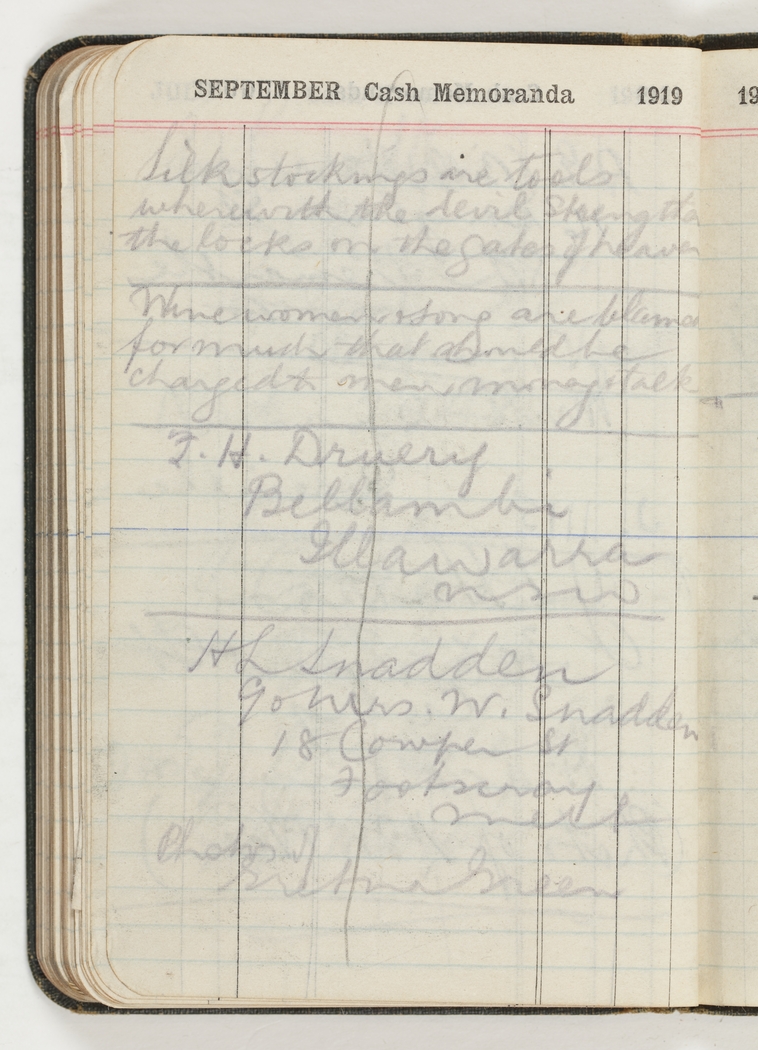 SEPTEMBER Cash Memoranda 1919
19
Silk stockings are tools
wherewith the devil Strengths
the locks on the gates of heaven
Wine women & song are blamed
for much that should be
charged to men, money & talk
F. H. Druery
Bellambi
Illawarra
NSW
H L Snadden
C/o Mrs. W. Snadden
18 Cowper St
Footscray
Melb
Photos of
Gretna Green